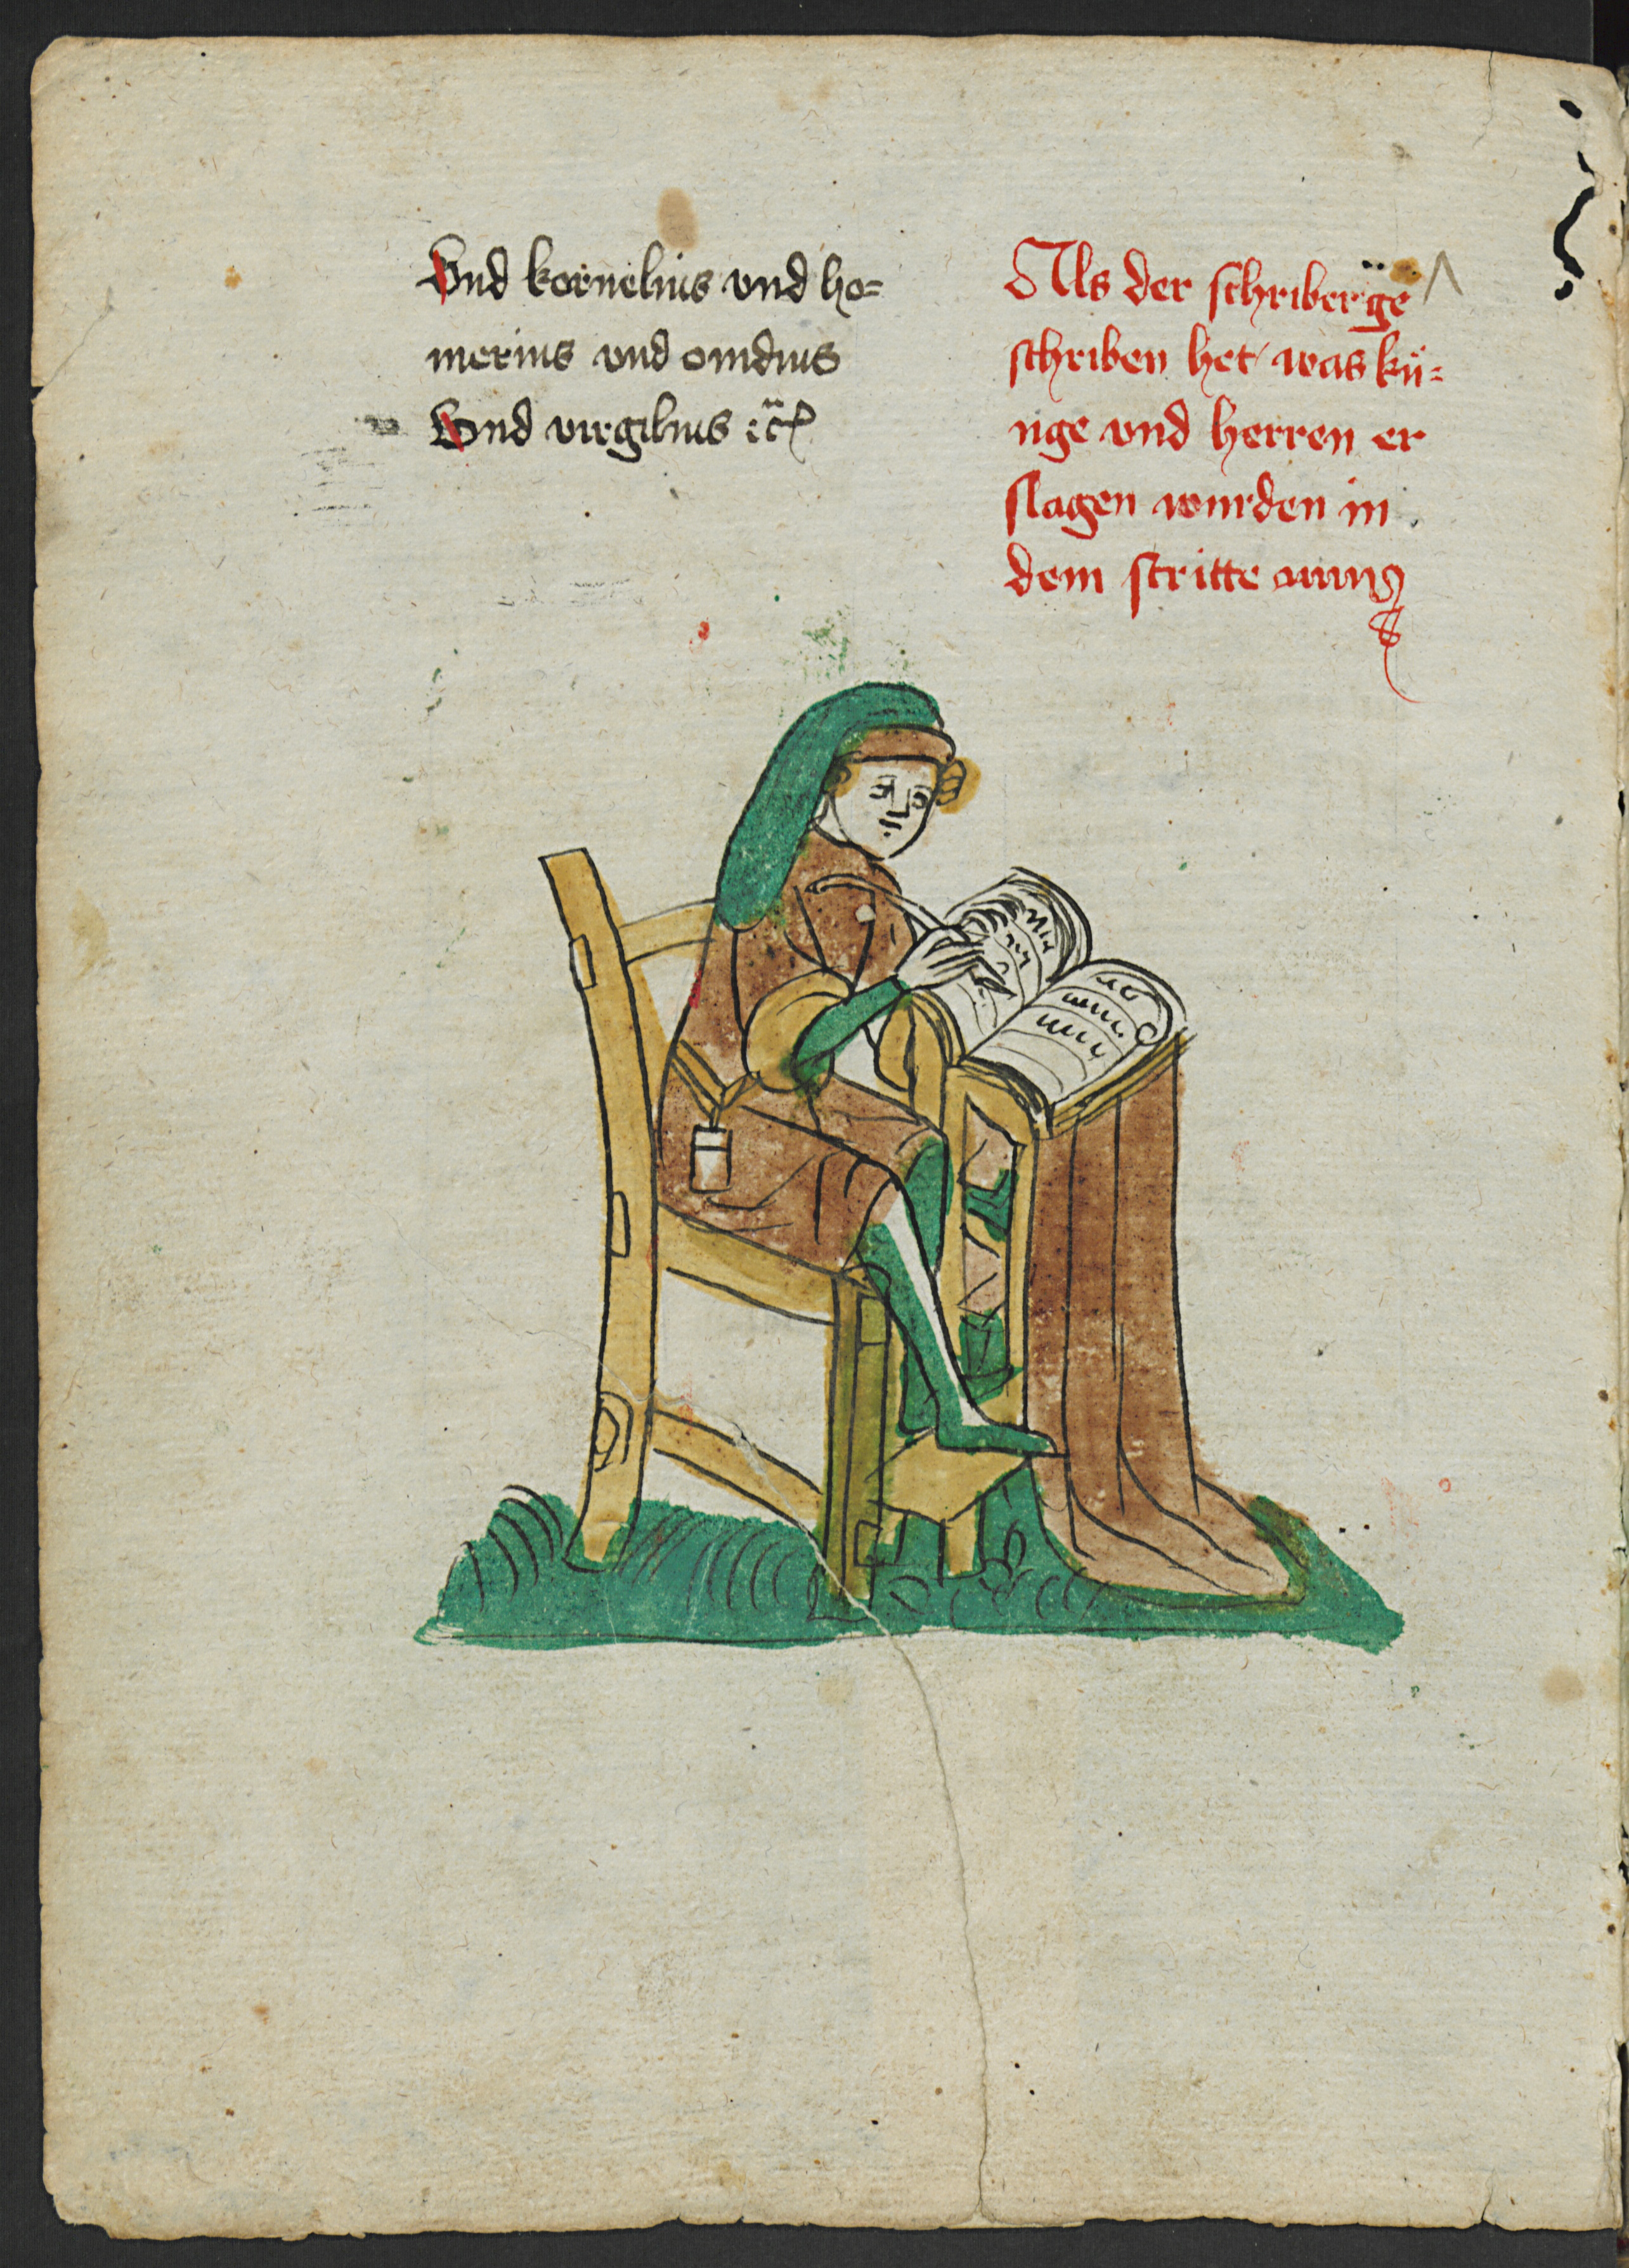 Vnd kornelius vnd ho=
merius vnd ouidius
Vnd virgilius ꝛc̈
Als der schriber ge
schriben het was kü=
nge vnd herren er
slagen wurden in
dem stritte